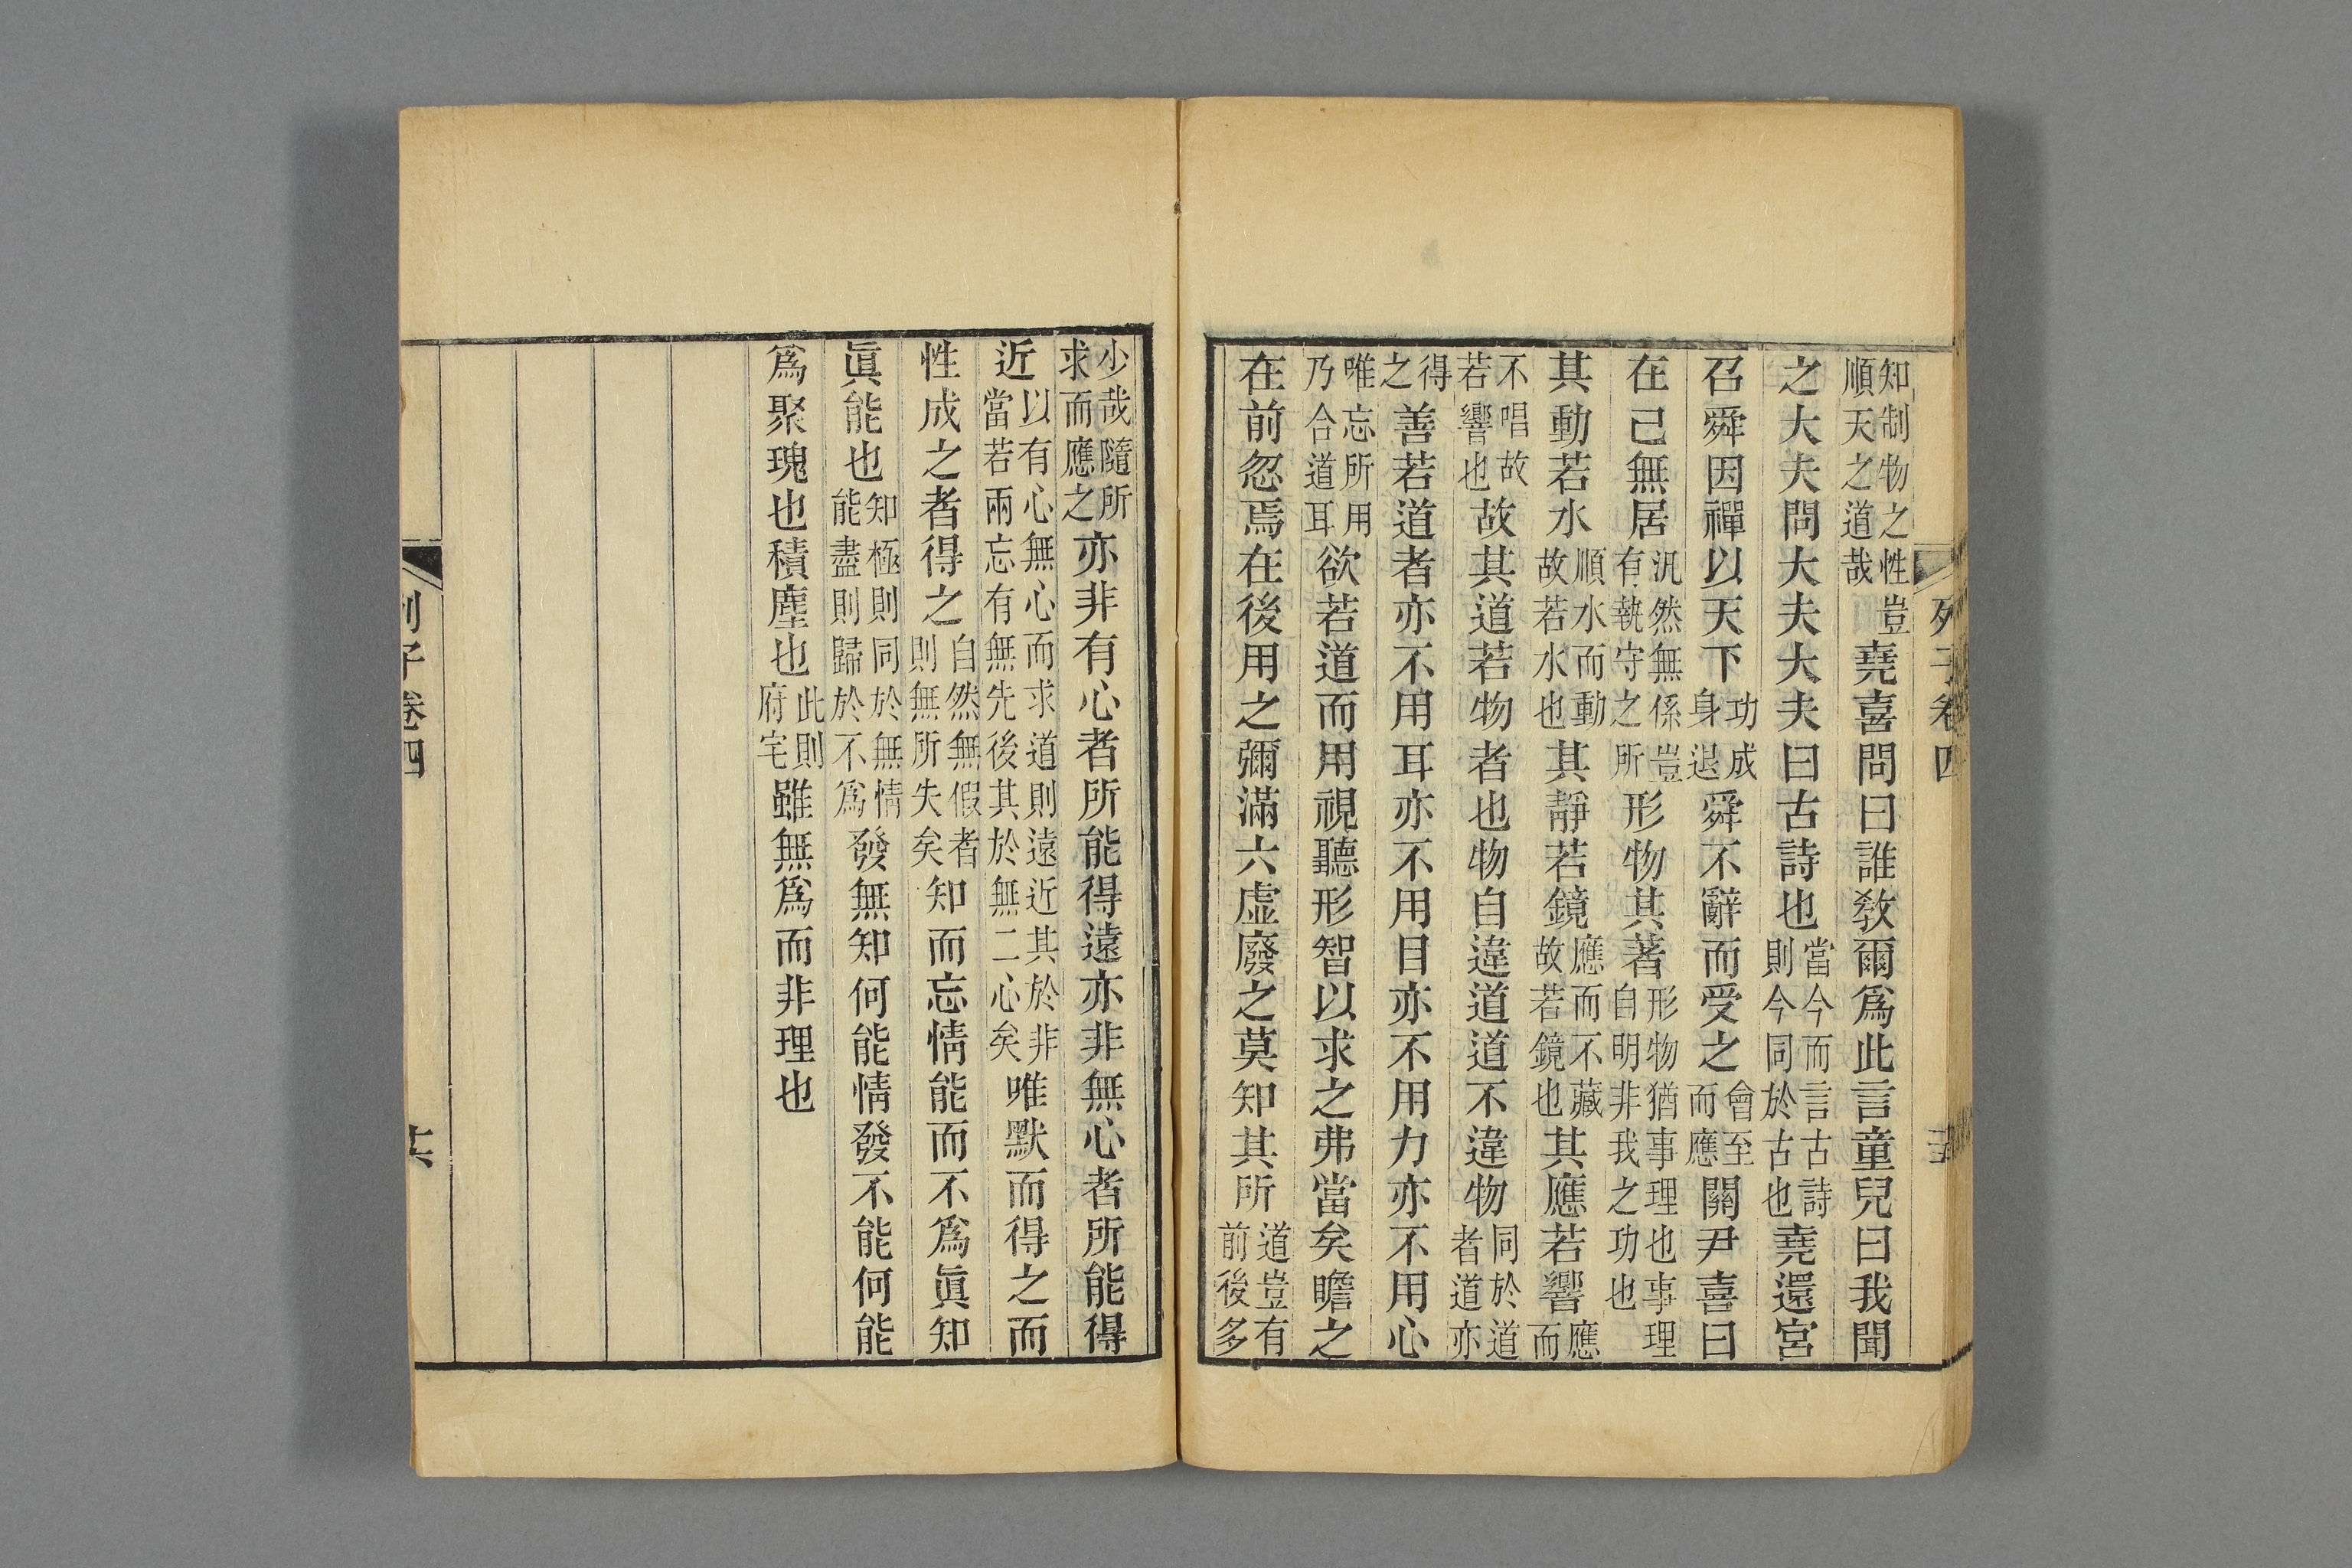 列子卷四
知制物之性豈順天之道哉堯喜問曰誰教爾爲此言童兒曰我聞
之大夫問大夫大夫曰古詩也當今而言古詩則今同於古也堯還宮
召舜因禪以天下功成身退舜不辭而受之會至而應關尹喜曰
在己無居汎然無係豈有執守之所形物其著形物猶事理也事理自明非我之功也
其動若水順水而動故若水也其靜若鏡應而不藏故若鏡也其應若響應而
不唱故若響也故其道若物者也物自違道道不違物同於道者道亦
得之善若道者亦不用耳亦不用目亦不用力亦不用心
唯忘所用乃合道耳欲若道而用視聽形智以求之弗當矣瞻之
在前忽焉在後用之彌滿六虛廢之莫知其所道豈有前後多
少哉隨所求而應之亦非有心者所能得遠亦非無心者所能得
近以有心無心而求道則遠近其於非當若兩忘有無先後其於無二心矣唯默而得之而
性成之者得之自然無假者則無所失矣知而忘情能而不爲眞知
眞能也知極則同於無情能盡則歸於不爲發無知何能情發不能何能
爲聚瑰也積塵也此則府宅雖無爲而非理也
列子卷四